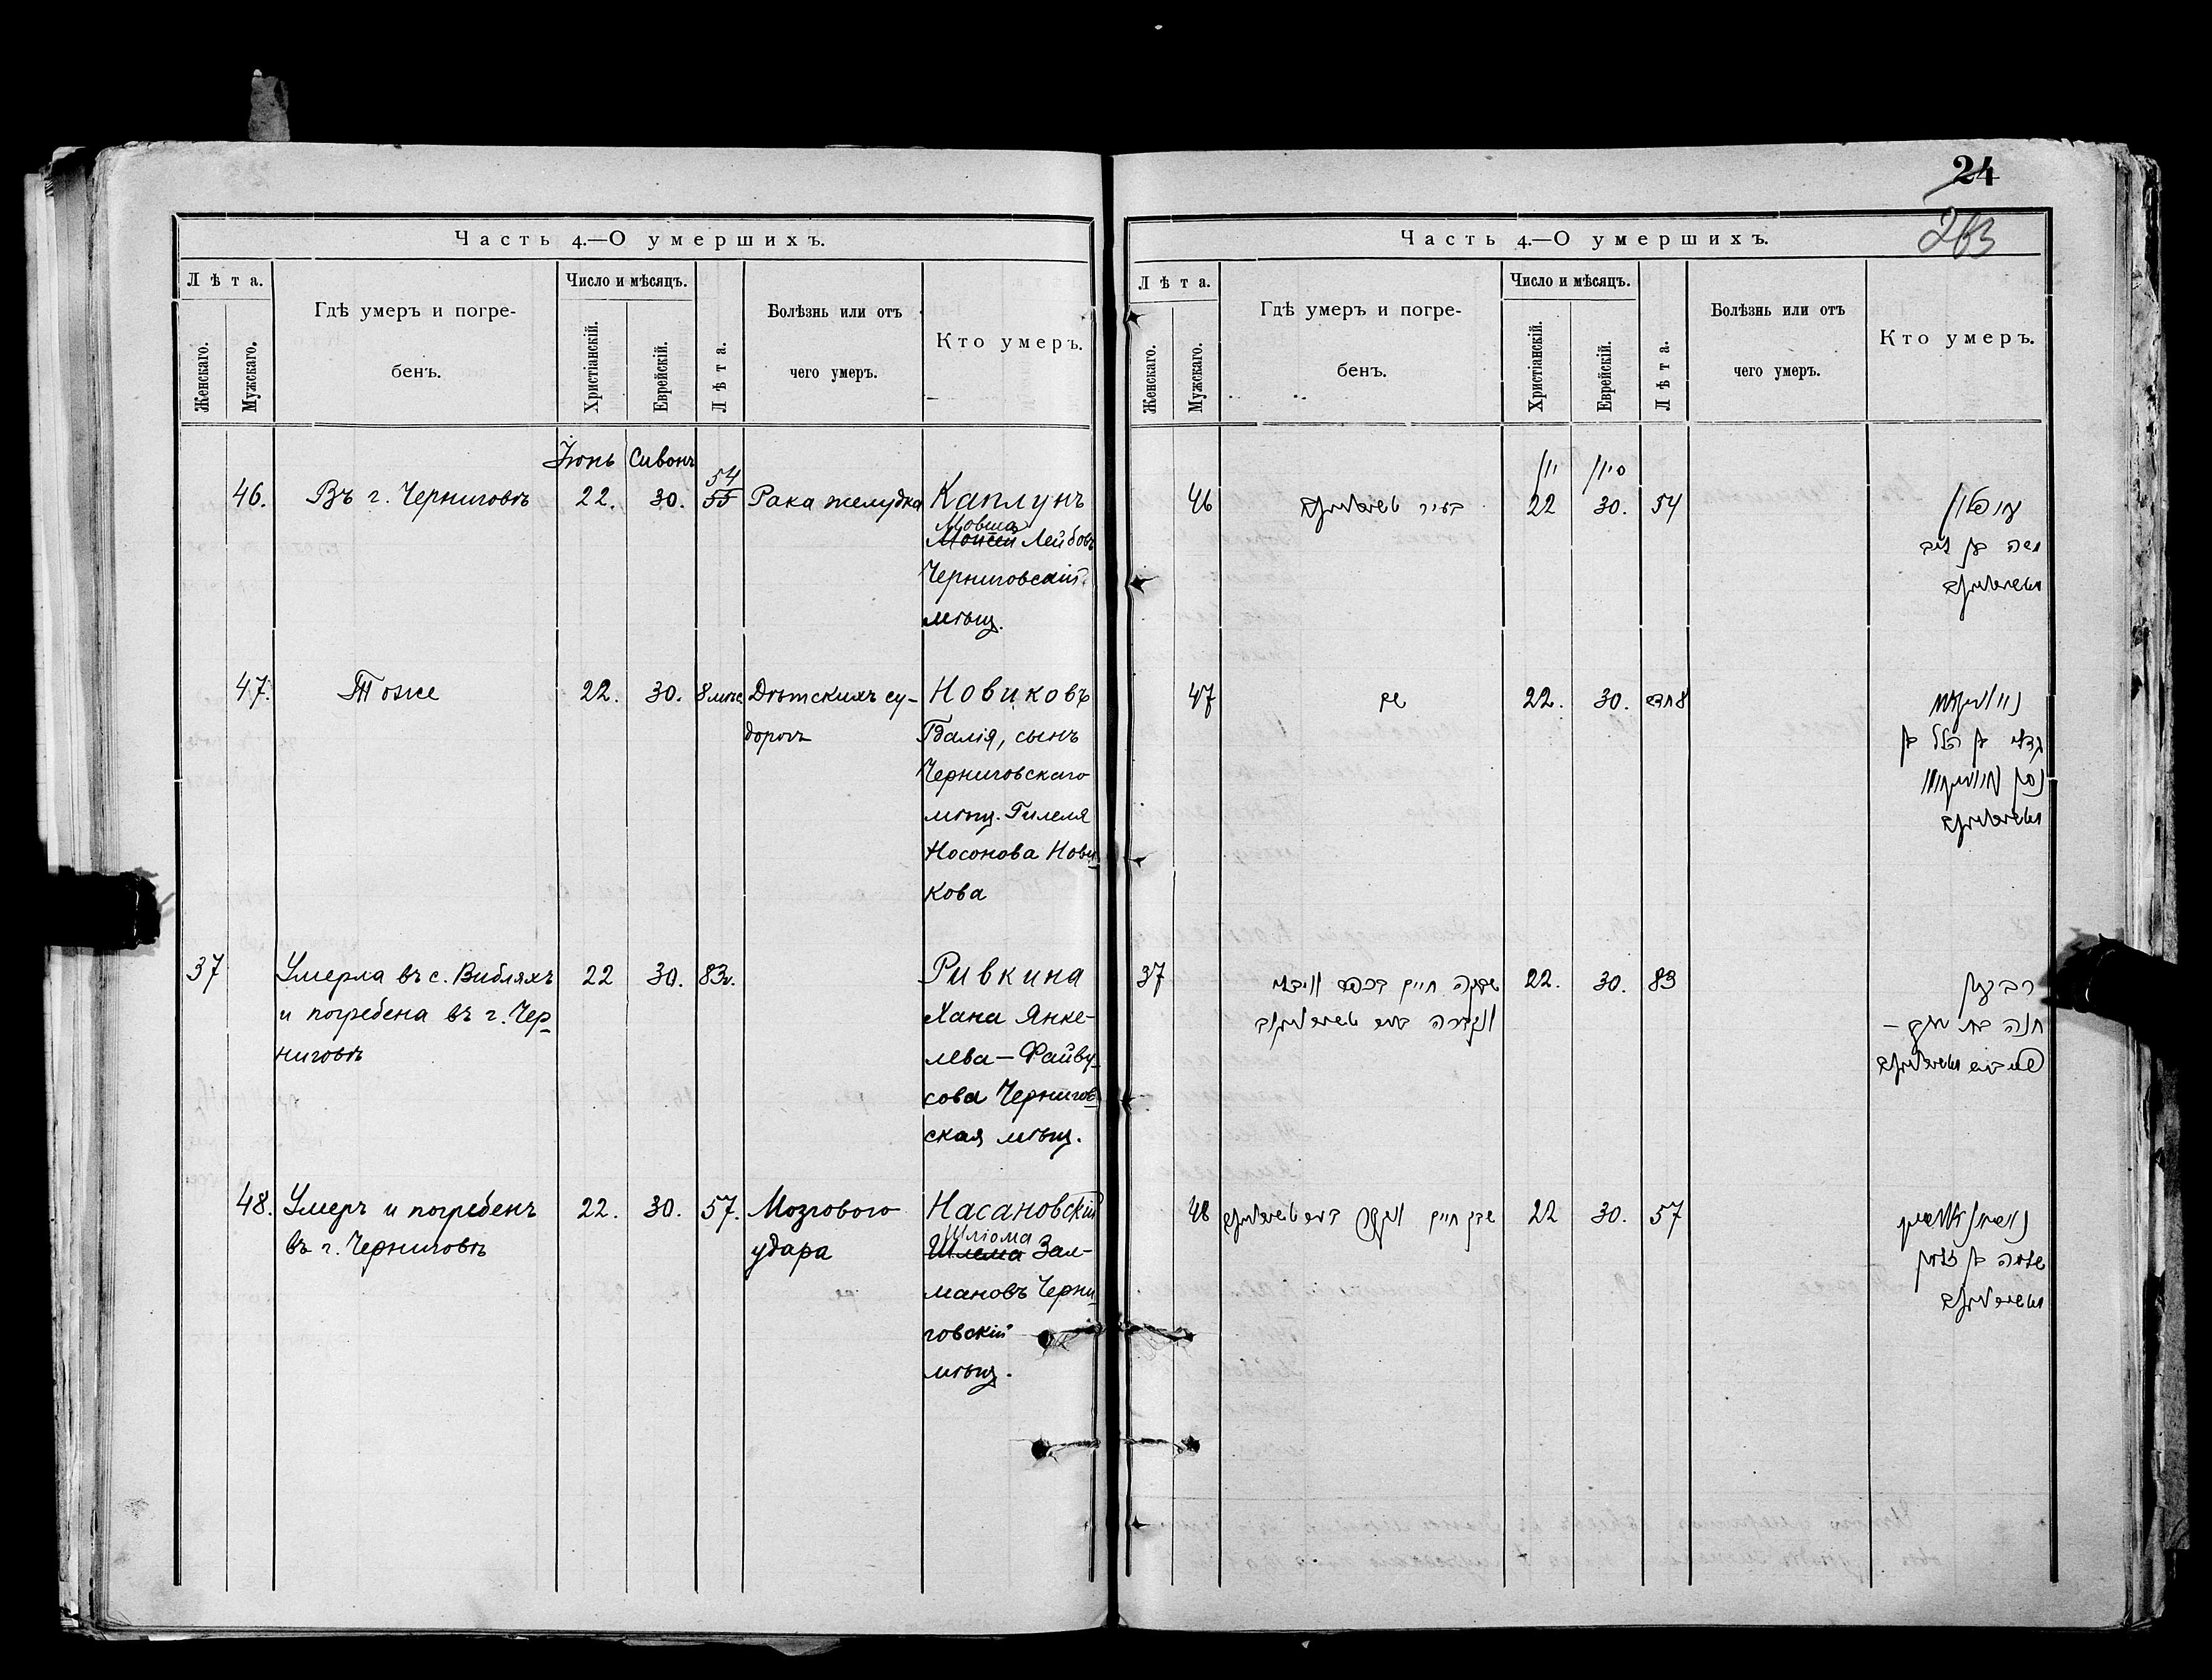 24
263
Часть 4.—О умершихъ.
Лѣта.
Женскаго.
Мужскаго.
Гдѣ умеръ и погре-
бенъ.
Число и мѣсяцъ.
Христіанскій.
Еврейскій.
Лѣта.
Болѣзнь или отъ
чего умеръ.
Кто умеръ.
Іюнь Сивонъ
46. Въ г. Черниговѣ 22. 30. 54 55 Рака желудка Каплунъ
Мовша
Моисей Лейбовъ
Черниговскій
мѣщ.
47. Тоже 22. 30. 8 мѣс Дѣтскихъ су-
дорогъ
Новиковъ
Гдалія, сынъ
Черниговскаго
мѣщ. Гилеля
Носонова Нови-
кова
37 Умерла въ с. Вибляхъ
и погребена въ г. Чер-
ниговѣ
22 30. 83 г.
Ривкина
Хана Янке-
лева—Файву-
сова Чернигов-
ская мѣщ.
48. Умеръ и погребенъ
въ г. Черниговѣ
22. 30. 57. Мозгового
удара
Насановскій
Шліома
Шлема Зал-
мановъ Черни-
говскій
мѣщ.
Часть 4.—О умершихъ.
Лѣта.
Женскаго.
Мужскаго.
Гдѣ умеръ и погре-
бенъ.
Число и мѣсяцъ.
Христіанскій.
Еврейскій.
Лѣта.
Болѣзнь или отъ
чего умеръ.
Кто умеръ.
יון סיון
46 בעיר טשערניגאוו 22 30. 54
משה בן ליב
47 שם 22. 30. 8 חדש
גדלי' בן הלל בן
נסן
37 22. 30. 83
חנה בת יענקל –
48 22 30. 57
שלמה בן זלמן